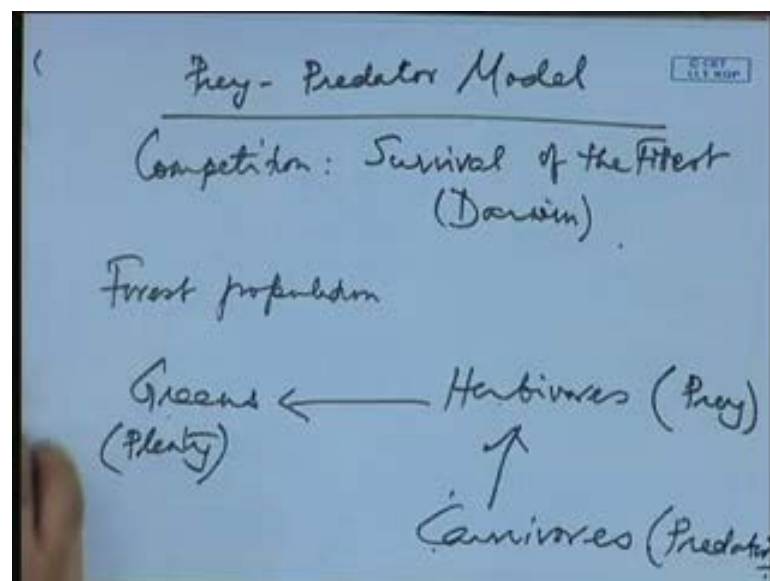 Prey - Predator Model
© CET
I.I.T. KGP
Competition: Survival of the Fittest
(Darwin)
Forest population
Greens ← Herbivores (Prey)
(Plenty)
Carnivores (Predator